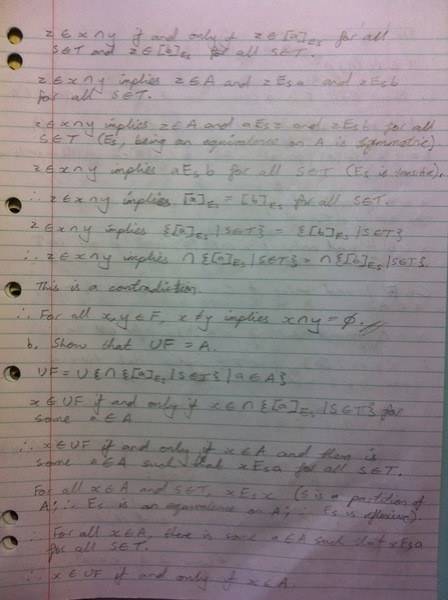 z ∈ x∩y if and only if z ∈ [a]_Es for all
S∈T and z ∈ [b]_Es for all S∈T.
z ∈ x∩y implies z∈A and zEsa and zEsb
for all S∈T.
z ∈ x∩y implies z∈A and aEsz and zEsb for all
S∈T (Es, being an equivalence on A is symmetric).
z ∈ x∩y implies aEsb for all S∈T (Es is transitive).
∴ z ∈ x∩y implies [a]_Es = [b]_Es for all S∈T.
z ∈ x∩y implies {[a]_Es | S∈T} = {[b]_Es | S∈T}
∴ z ∈ x∩y implies ∩{[a]_Es | S∈T} = ∩{[b]_Es | S∈T}.
This is a contradiction.
∴ For all x,y ∈ F, x ≠ y implies x∩y = ∅. //
b. Show that ∪F = A.
∪F = ∪{∩{[a]_Es | S∈T} | a∈A}
x ∈ ∪F if and only if x ∈ ∩{[a]_Es | S∈T} for
some a∈A.
∴ x ∈ ∪F if and only if x∈A and there is
some a∈A such that xEsa for all S∈T.
For all x∈A and S∈T, xEsx (S is a partition of
A; ∴ Es is an equivalence on A; ∴ Es is reflexive).
∴ For all x∈A, there is some a∈A such that xEsa
for all S∈T.
∴ x ∈ ∪F if and only if x∈A.